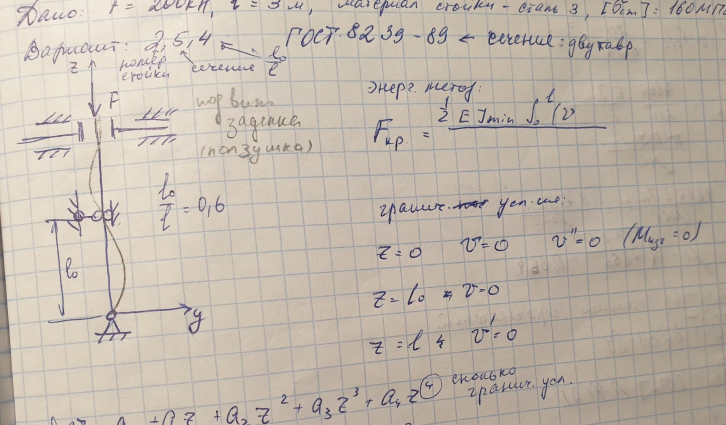 Дано: F = 200кН, l = 3 м, материал стойки - сталь 3, [σст] = 160мПа
Вариант: 2, 5, 4 l₀/l ГОСТ 8239-89 ← сечение: двутавр.
номер стойки сечение
z
F
подвижн. заделка
(ползушка)
l₀/l = 0,6
l₀
y
Энерг. метод:
Fкр. = ½ E Jmin ∫₀ˡ (v
гранич. усл-ия:
z=0 v=0 v''=0 (Mизг=0)
z=l₀ v=0
z=l v'=0
+ a₂z² + a₃z³ + a₄z⁴ сколько
гранич. усл.